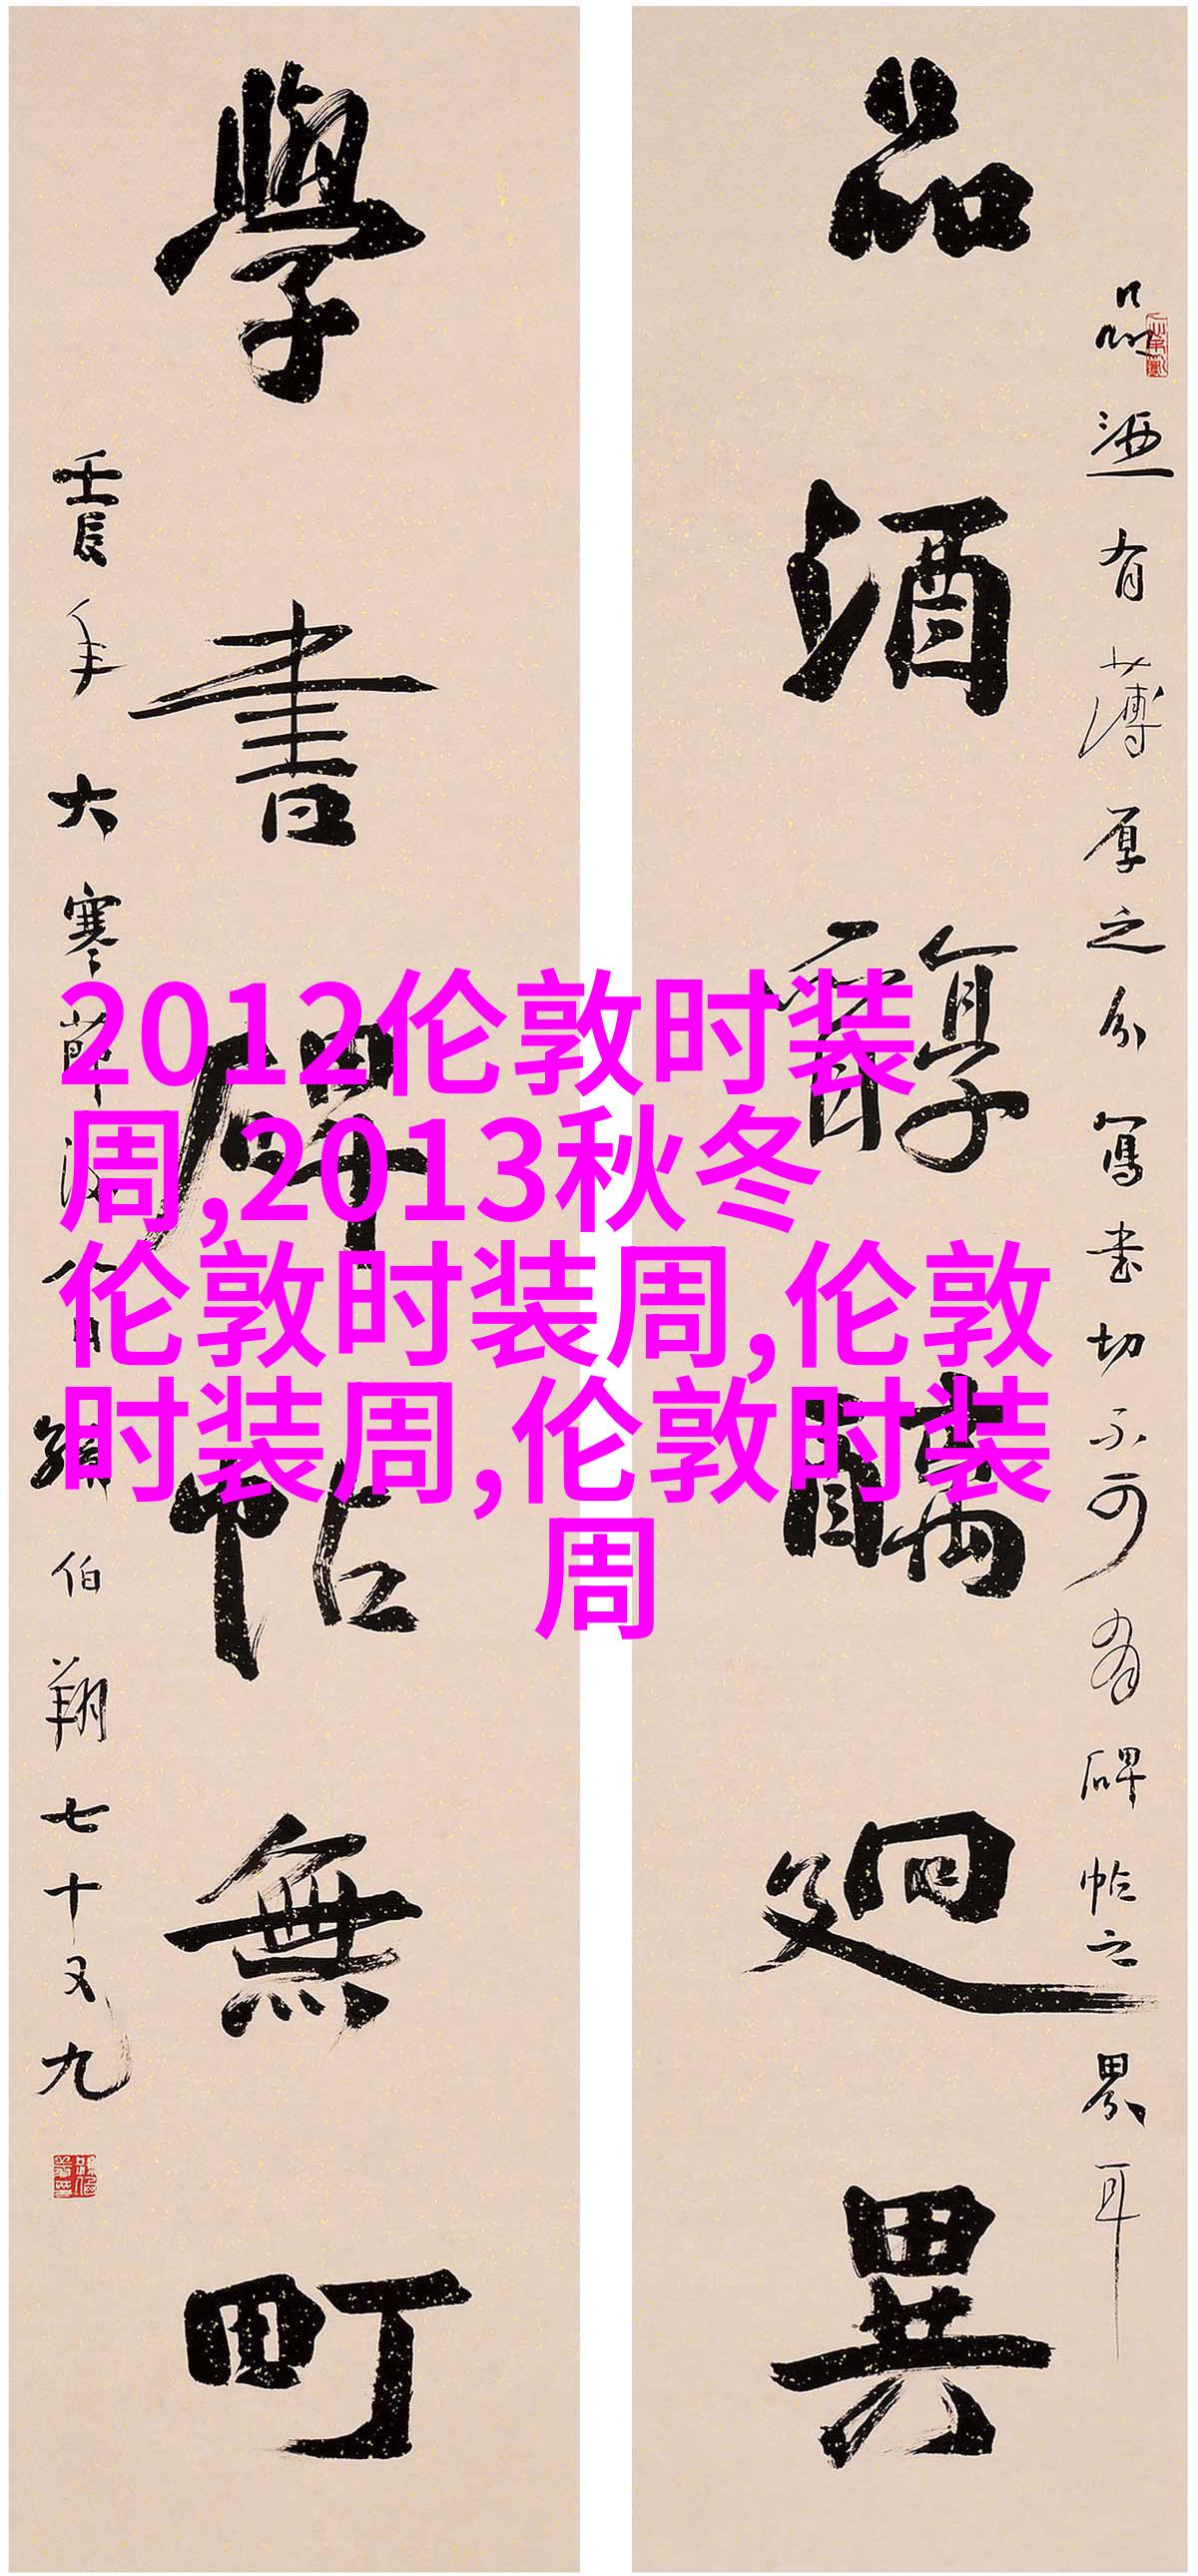 品酒醇醨迥異
品酒有薄厚之分寫書切不可有碑帖之界耳
學書碑帖無町
壬辰年大寒節後
伯翔七十又九
2012伦敦时装
周,2013秋冬
伦敦时装周,伦敦
时装周,伦敦时装
周